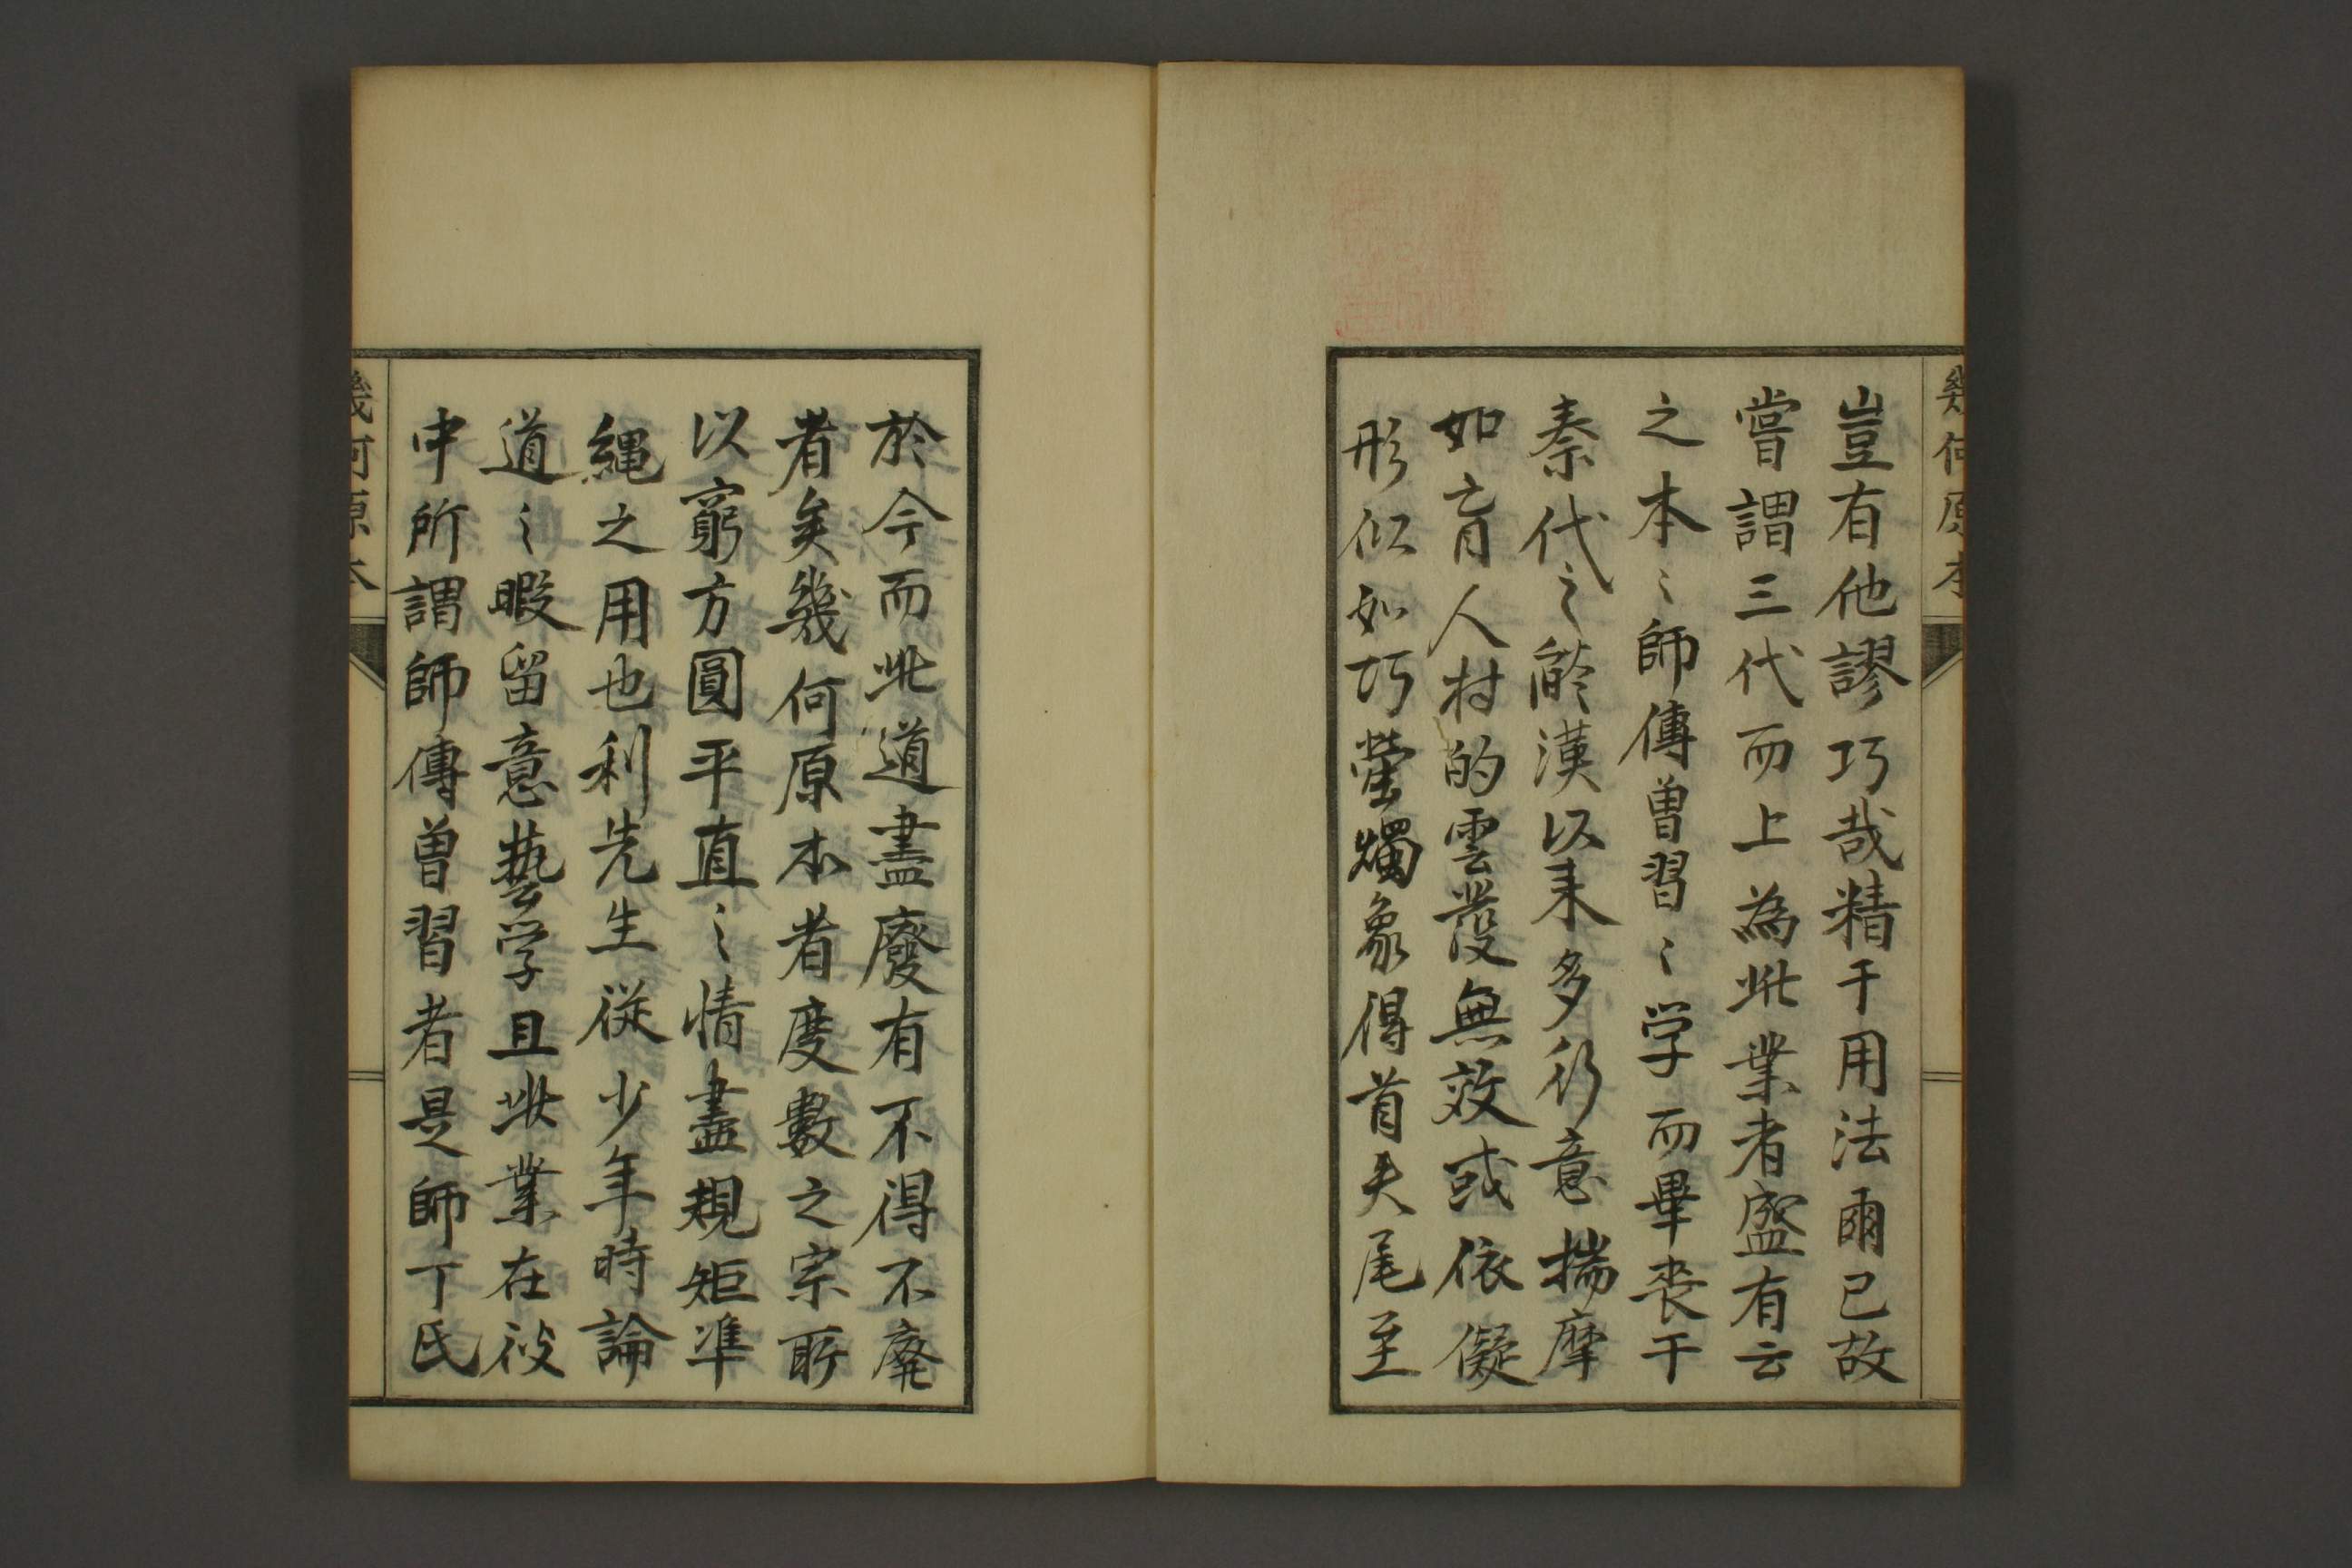 幾何原本
豈有他謬巧哉精于用法爾已故
嘗謂三代而上為此業者盛有云
之本〻師傳曽習〻学而畢喪于
秦代之𦦨漢以来多行意揣摩
如盲人射的虛發無效或依儗
形似如巧螢燭象得首失尾至
於今而此道盡廢有不得不廃
者矣幾何原本者度數之宗所
以窮方圓平直之情盡規矩準
縄之用也利先生從少年時論
道之暇留意藝学且此業在彼
中所謂師傳曽習者是師丁氏
幾何原本